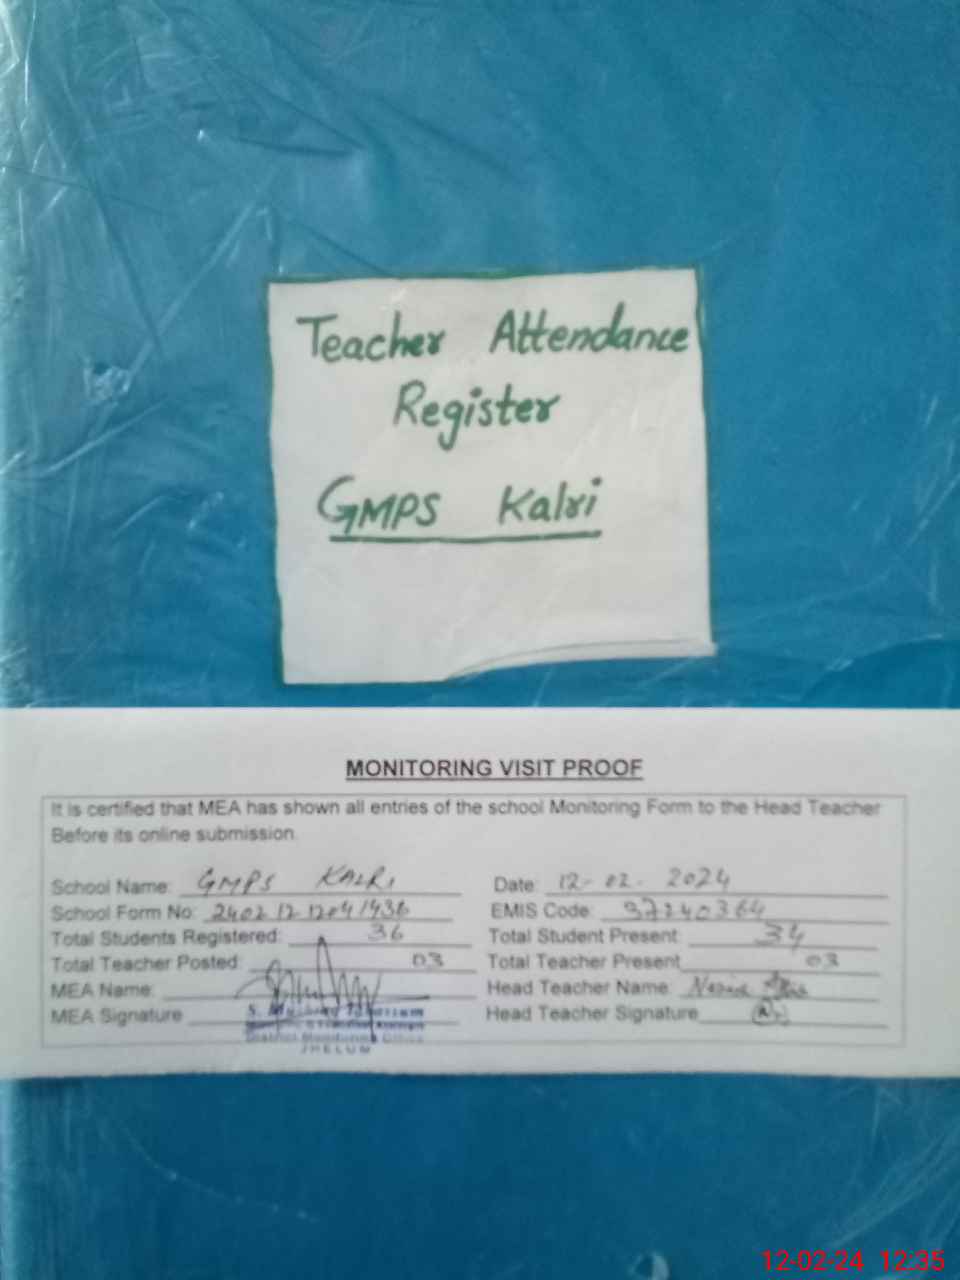 Teacher Attendance
Register
GMPS Kalri
MONITORING VISIT PROOF
It is certified that MEA has shown all entries of the school Monitoring Form to the Head Teacher
Before its online submission.
School Name: GMPS KALRI Date: 12-02-2024
School Form No: EMIS Code: 37240364
Total Students Registered: 36 Total Student Present: 34
Total Teacher Posted: 03 Total Teacher Present 03
MEA Name: Head Teacher Name: Nazia
MEA Signature Head Teacher Signature
District Monitoring Office
JHELUM
12-02-24 12:35